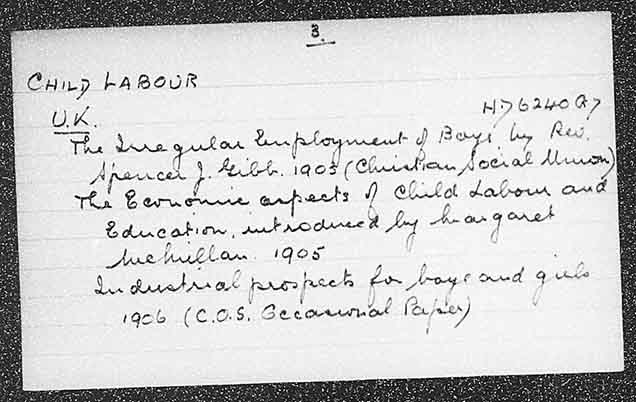 3.
CHILD LABOUR
U.K.
HD6240 Q7
The Irregular Employment of Boys by Rev.
Spencer J. Gibb. 1903 (Christian Social Union)
The Economic aspects of Child Labour and
Education, introduced by Margaret
McMillan. 1905
Industrial prospects for boys and girls
1906 (C.O.S. Occasional Paper)